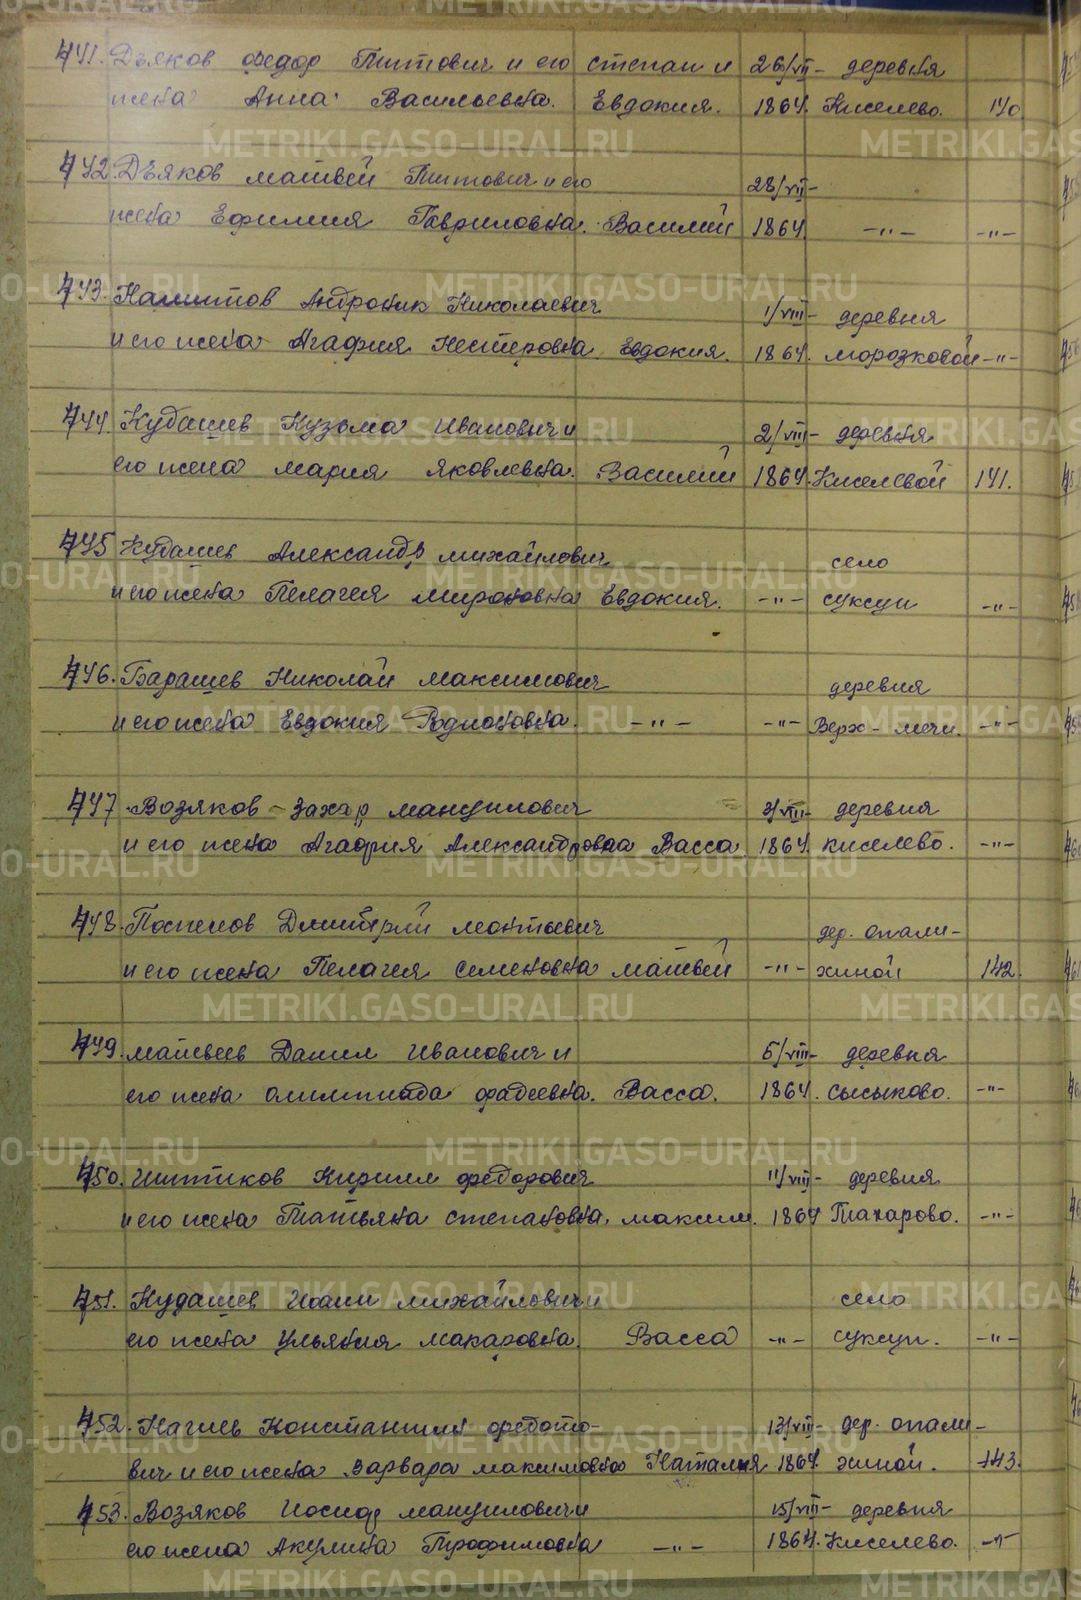 441. Дьяков Федор Титович и его Степан и 26/VII- деревня
жена Анна Васильевна. Евдокия. 1864. Киселево. 140
442. Дьяков Матвей Титович и его 28/VII-
жена Ефимия Гавриловна. Василий 1864. -"- -"-
443. Андроник Николаевич 1/VIII- деревня
и его жена Агафия Нестеровна Евдокия. 1864. Морозковой -"-
444. Кудашев Кузьма Иванович и 2/VIII- деревня
его жена Мария Яковлевна. Василий 1864. Киселевой 141.
445 Кудашев Александр Михайлович село
и его жена Пелагея Мироновна Евдокия. -"- Суксун -"-
446. Барашев Николай Максимович деревня
и его жена Евдокия Родионовна. -"- -"- Верх-мечи. -"-
447 Возяков Захар Мануилович 3/VIII- деревня
и его жена Агафия Александровна Васса 1864. Киселево. -"-
448. Дмитрий Леонтьевич дер. Опали-
и его жена Пелагея Семеновна Матвей -"- хиной 142.
449. Матвеев Данил Иванович и 5/VIII- деревня
его жена Олимпиада Фадеевна. Васса. 1864. Сысыково. -"-
450. Шитиков Кирилл Федорович 11/VIII- деревня
и его жена Татьяна Степановна. Максим. 1864 Тахарово. -"-
451. Кудашев Иоанн Михайлович и село
его жена Ульяния Макаровна. Васса -"- Суксун. -"-
452. Нагиев Константин Федото- 13/VIII- дер. Опали-
вич и его жена Варвара Максимовна Наталия 1864. хиной. 143.
453. Возяков Иосиф Мануилович и 15/VIII- деревня
его жена Акулина Трофимовна -"- 1864. Киселево. -"-
METRIKI.GASO-URAL.RU